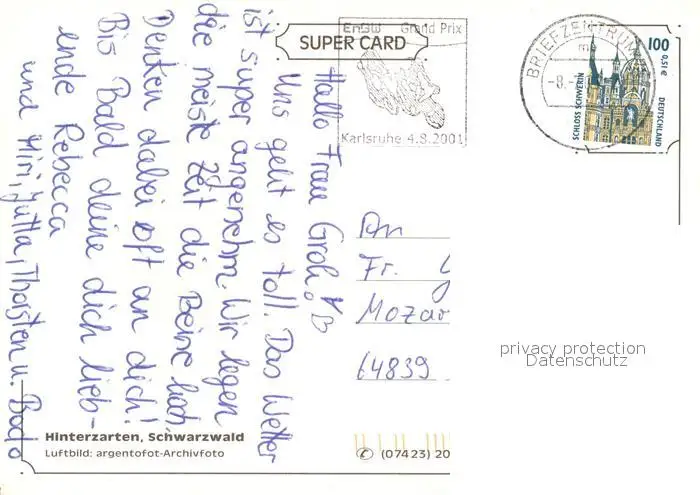 SUPER CARD
EnBW Grand Prix
Karlsruhe 4.8.2001
BRIEFZENTRUM
-8.-
100
0,51 €
SCHLOSS SCHWERIN
DEUTSCHLAND
Hallo Frau Groh!
Uns geht es toll. Das Wetter
ist super angenehm. Wir legen
die meiste Zeit die Beine hoch.
Denken dabei oft an dich!
Bis Bald deine dich lieb-
ende Rebecca
und Miri, Jutta, Thorsten u. Bodo
An
Fr. G
Mozar
64839
privacy protection
Datenschutz
Hinterzarten, Schwarzwald
Luftbild: argentofot-Archivfoto
(07423) 20